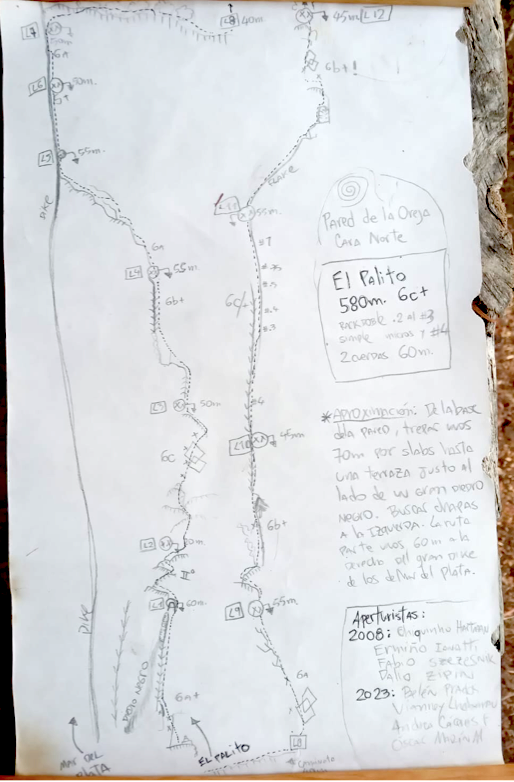 L8 40m
45m L12
L7
50m
6a
6b+!
L6 50m.
L5 55m.
DIKE
L11 55m.
Pared de la Oreja
Cara Norte
6a
#1
L4 55m
6b+
6c+
El Palito
580m. 6c+
Backpstie .2 al #3
simple micros y #4
2 cuerdas 60m.
L3 50m
#4
6c
L10 45m
* Aproximación: De la base
de la pared, trepar unos
70m por slabs hasta
una terraza justo al
lado de un gran diedro
negro. Buscar chapas
a la izquierda. La ruta
parte unos 60m a la
derecha del gran dike
de los del Mar del Plata.
L2
6b+
IIº
L1 60m
L9 55m
DIKE
Diedro Negro
6a+
6a
Aperturistas:
2008: Chiquinho
Ermiño
Fabio
Dalio Zipini
2023: Belén
Andrea
Oscar
Mar del
Plata
El Palito
L8